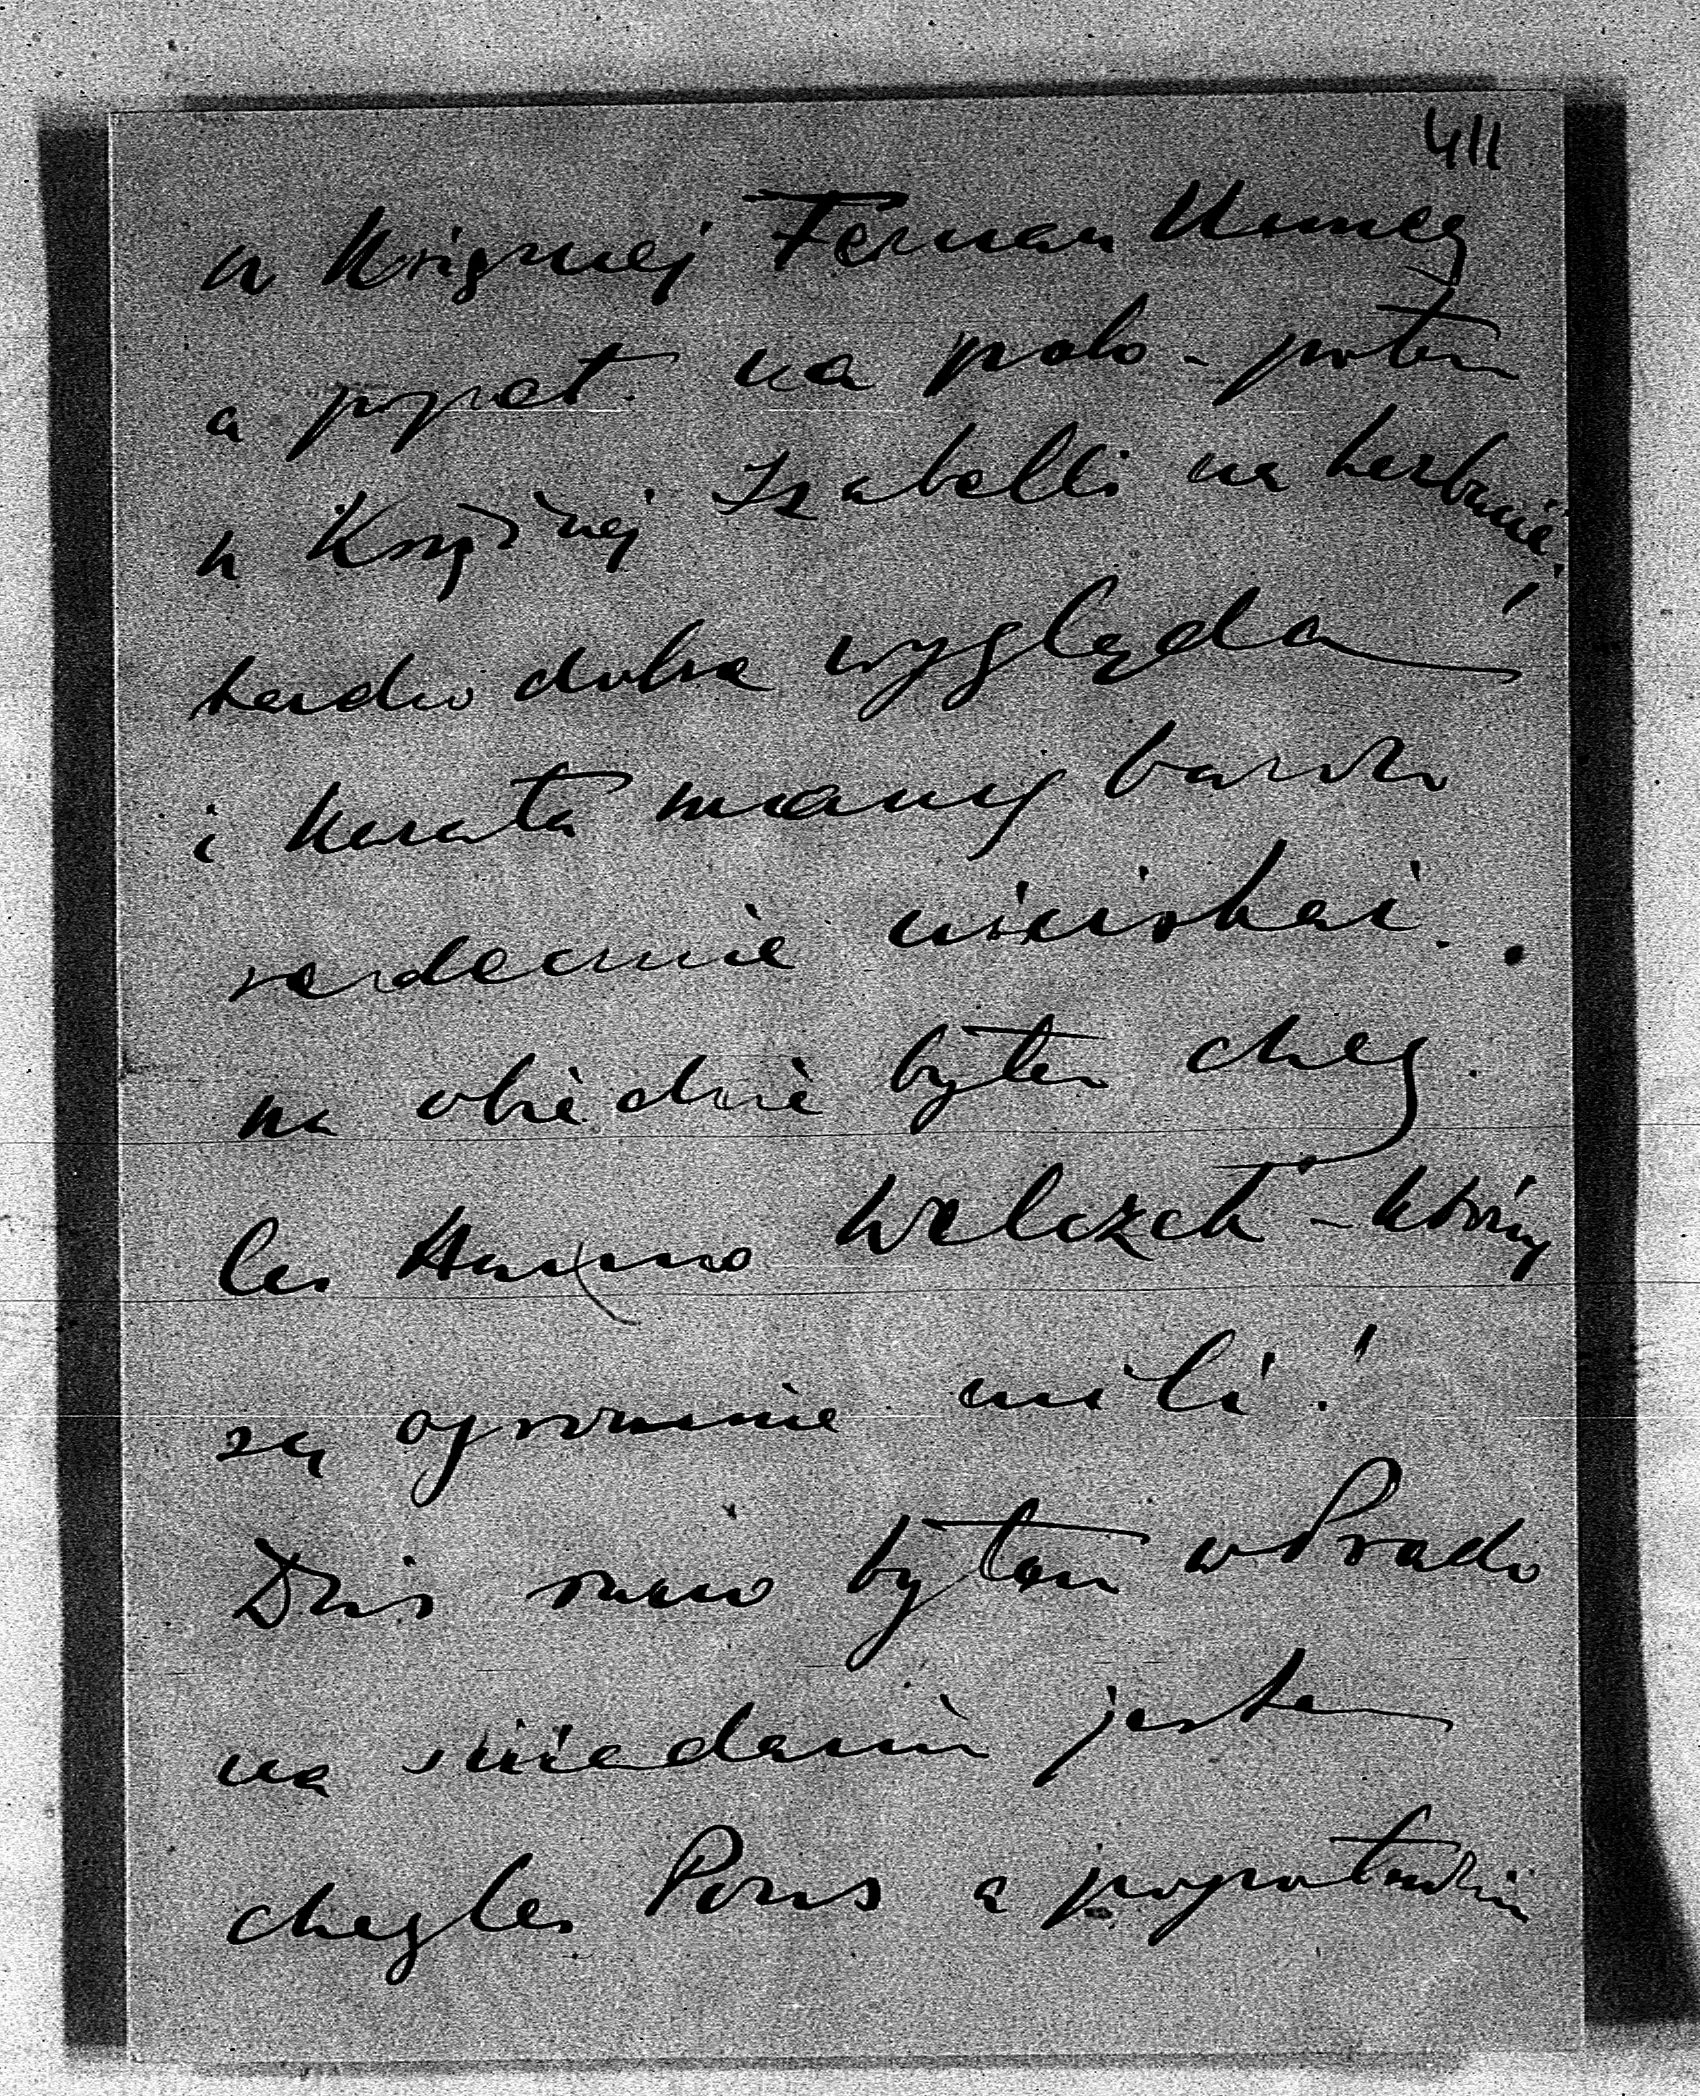 411
u Księżnej Fernan Nunez
a popoł. na polo - potem
u Księżnej Izabelli na herbacie,
bardzo dobrze wygląda
i kazała mamę bardzo
serdecznie uściskać.
na obiedzie byłem chez
les Hanno Welczek - którzy
są ogromnie mili!
Dziś rano byłem w Prado
na śniadaniu jestem
chez les Pons a popołudniu